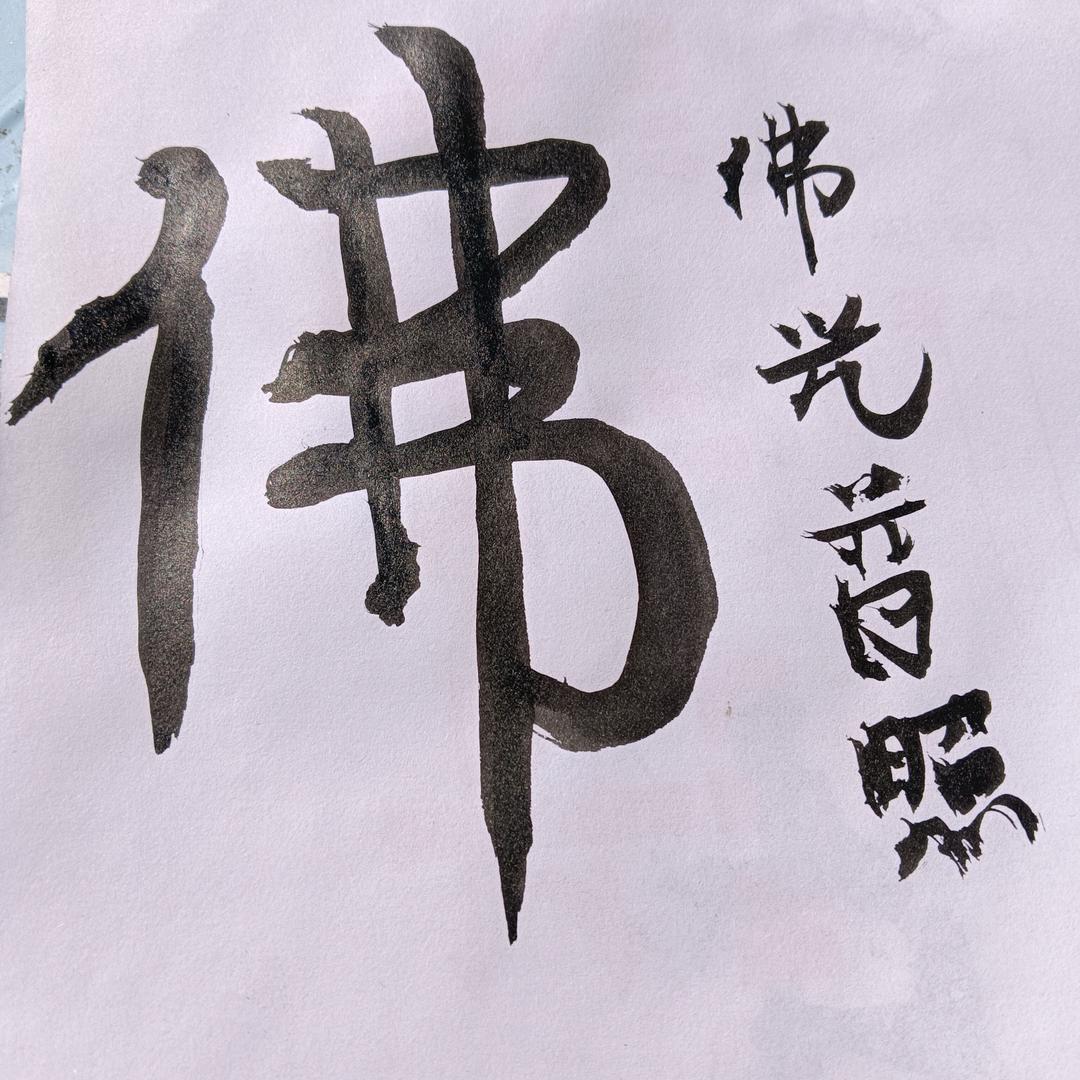 佛
佛光普照